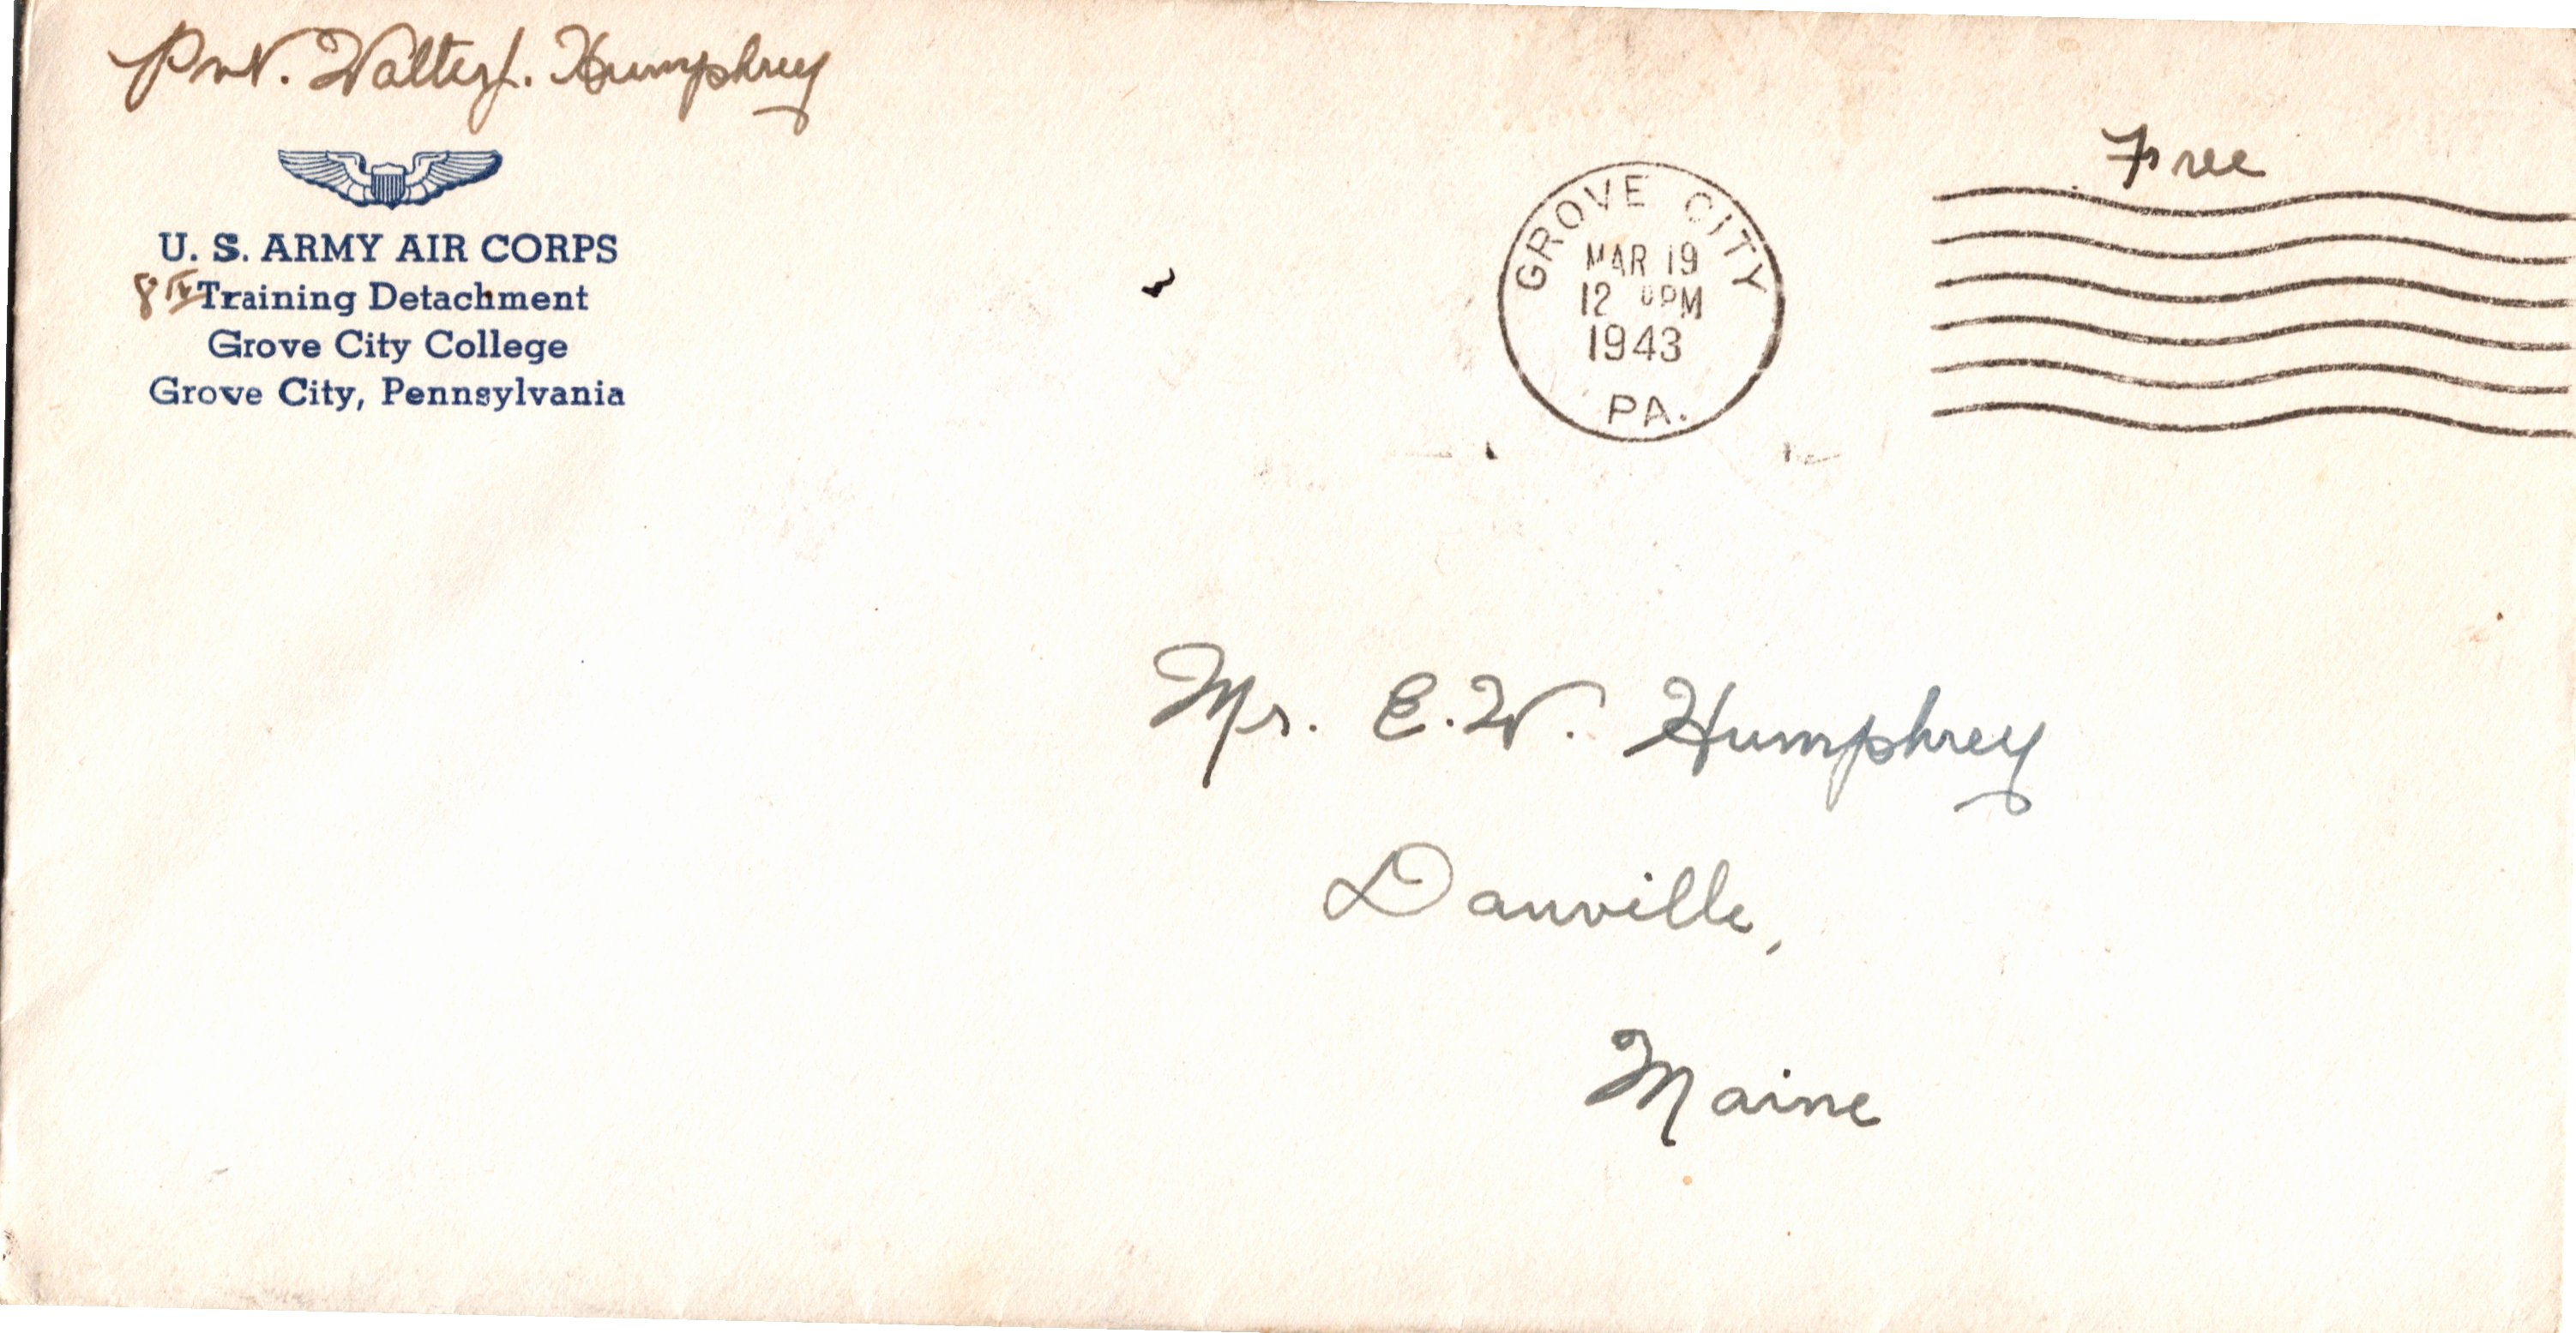 Pvt. Walter J. Humphrey
U. S. ARMY AIR CORPS
8th Training Detachment
Grove City College
Grove City, Pennsylvania
GROVE CITY
MAR 19
12 PM
1943
PA.
Free
Mr. E. W. Humphrey
Danville,
Maine